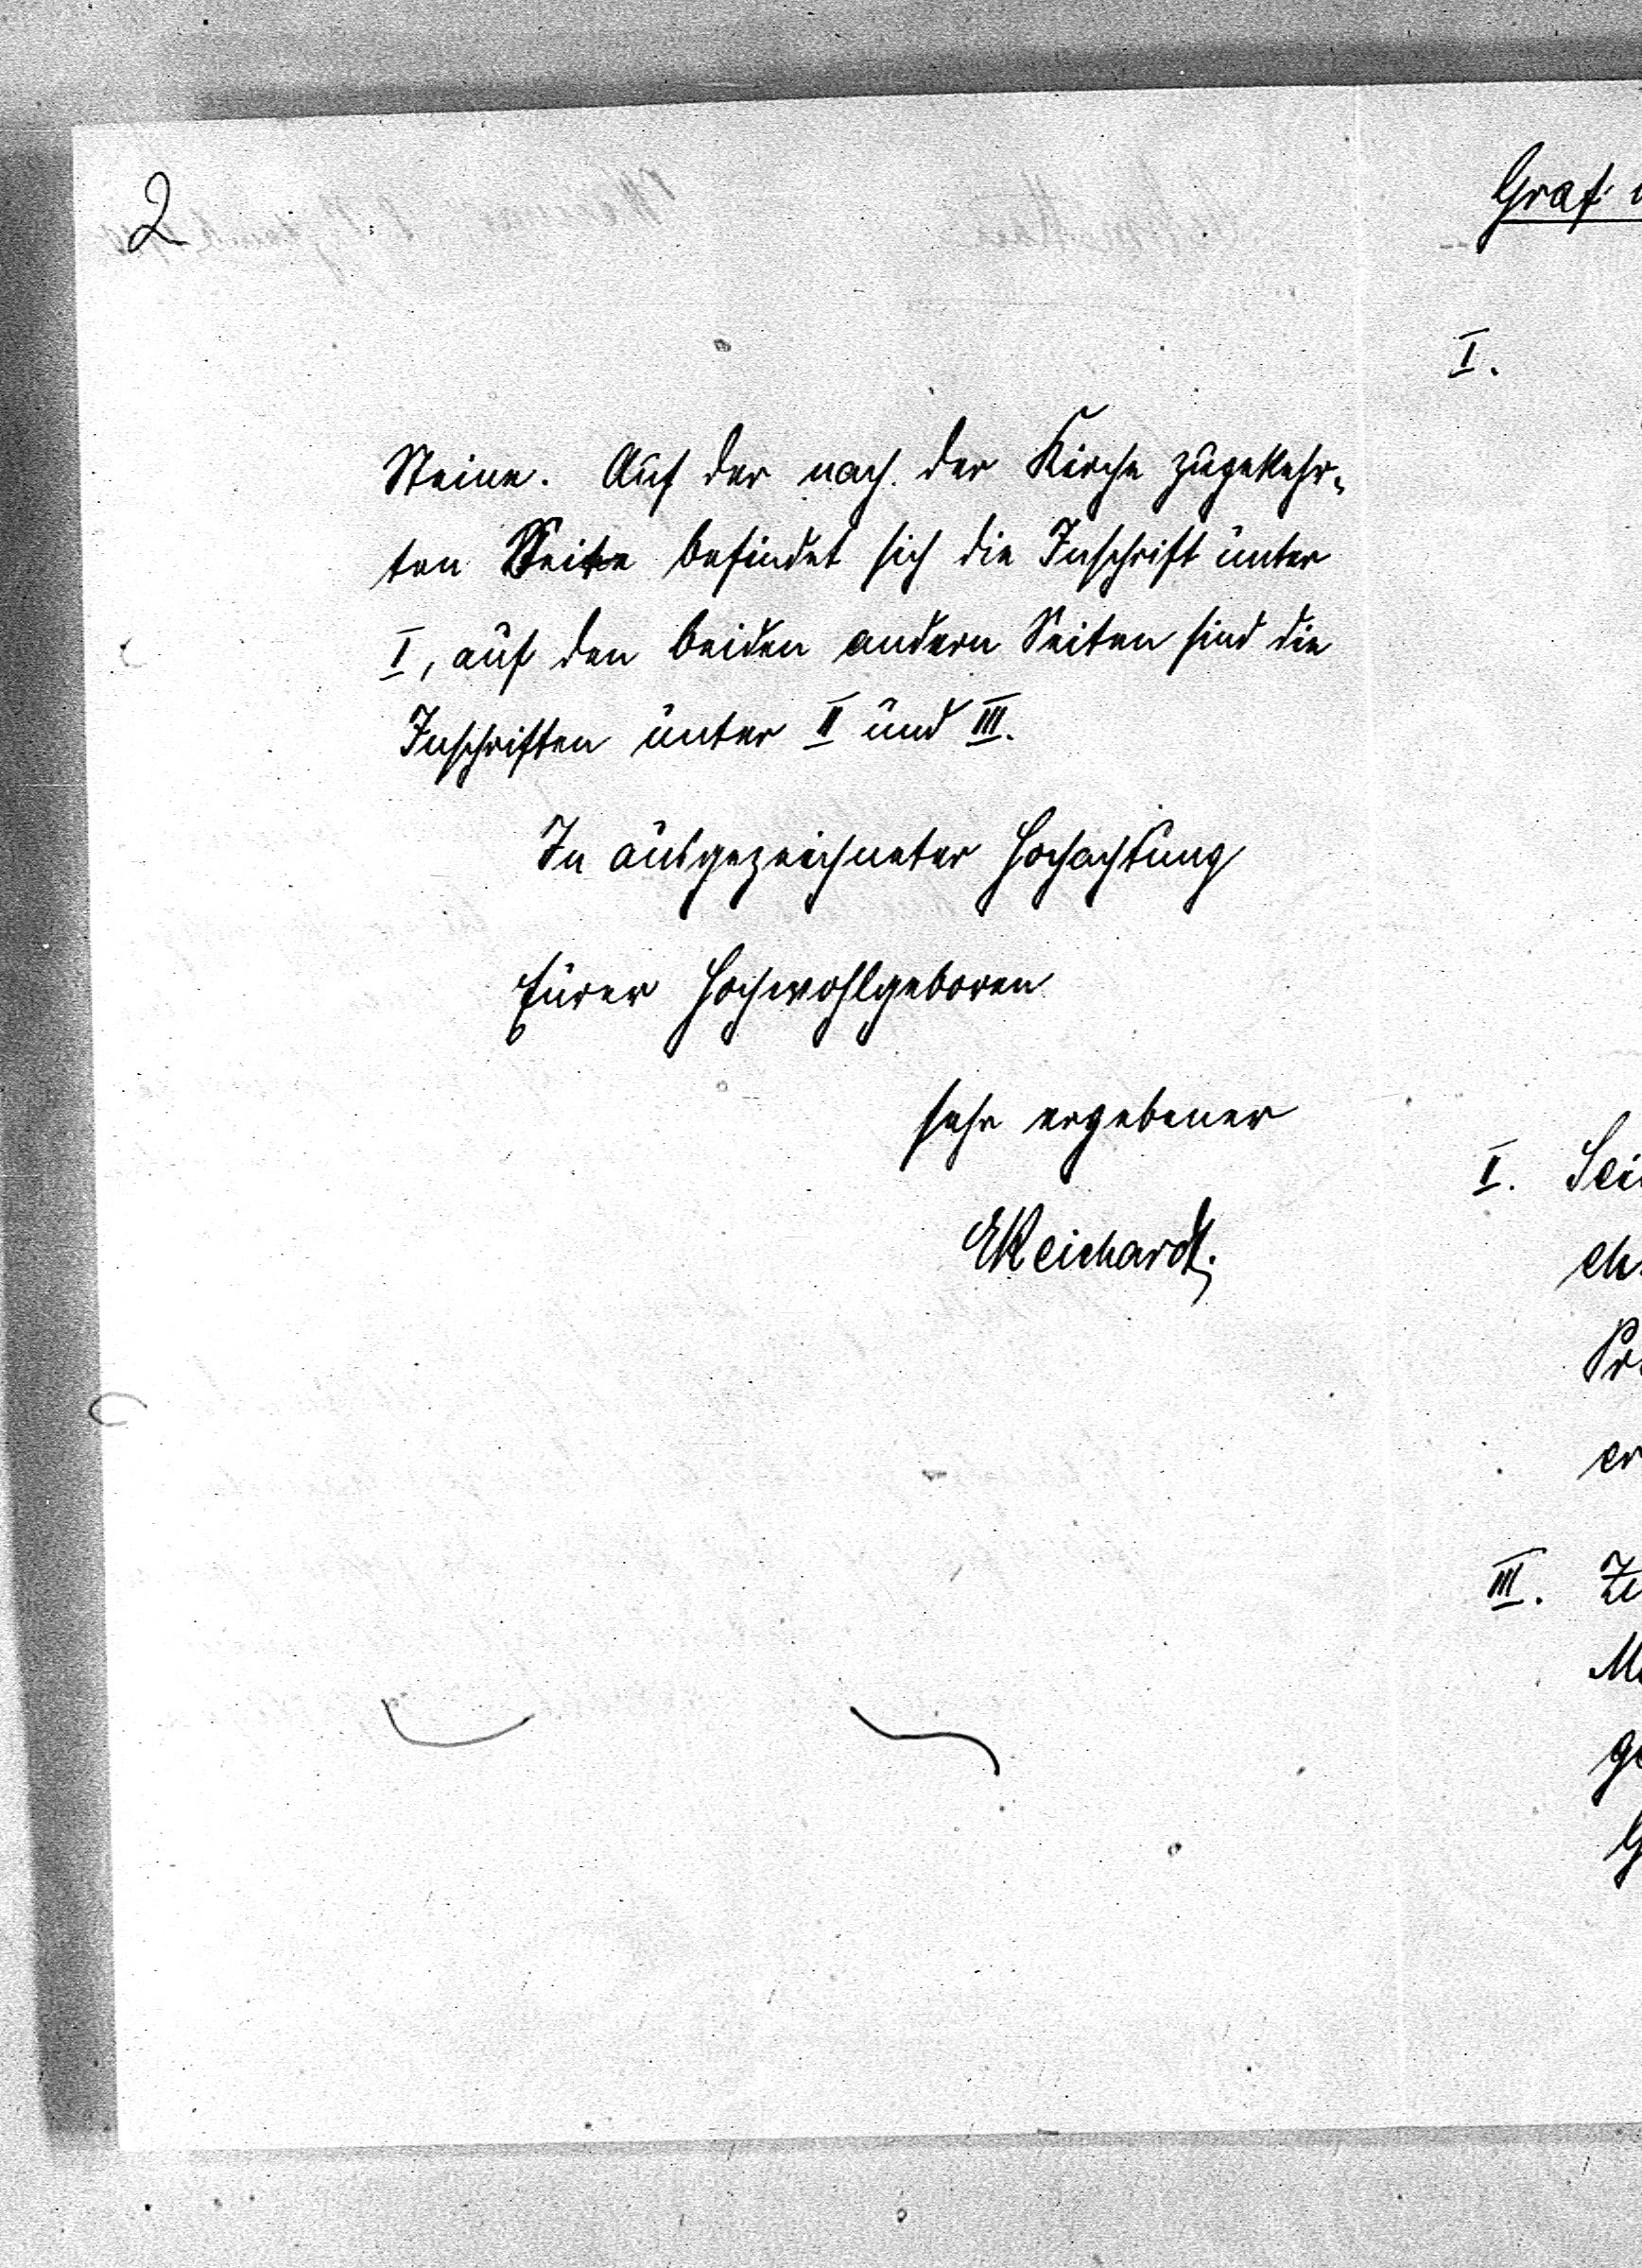 2
Steine. Auf der nach der Kirche zugekehr-
ten Seite befindet sich die Inschrift unter
I, auf den beiden andern Seiten sind die
Inschriften unter II und III.
In ausgezeichneter Hochachtung
Eurer Hochwohlgeboren
sehr ergebener
EReichardt.
Graf
I.
I. Sei
ch
Pr
er
III. Ze
Me
ge
G